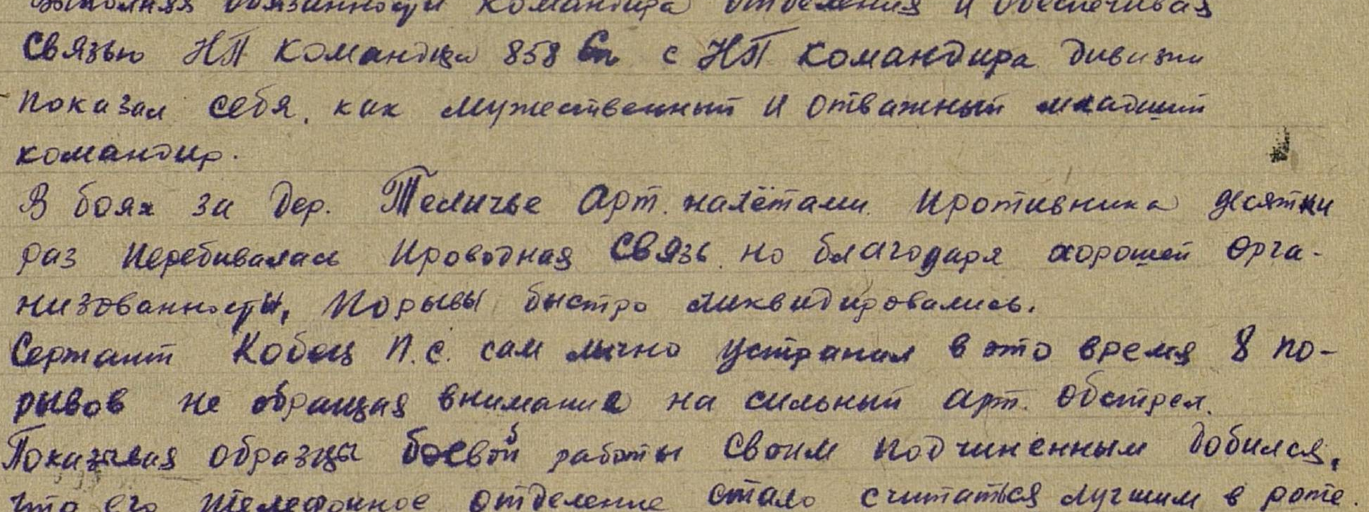 выполняя обязанности командира отделения и обеспечивая
связью НП командира 858 сп с НП командира дивизии
показал себя, как мужественный и отважный младший
командир.
В боях за дер. Теличье арт. налётами противника десятки
раз перебивалась проводная связь но благодаря хорошей орга-
низованности, порывы быстро ликвидировались.
Сержант Кобец П.С. сам лично устранил в это время 8 по-
рывов не обращая внимание на сильный арт. обстрел.
Показывая образцы боевой работы своим подчиненным добился,
что его телефонное отделение стало считаться лучшим в роте.